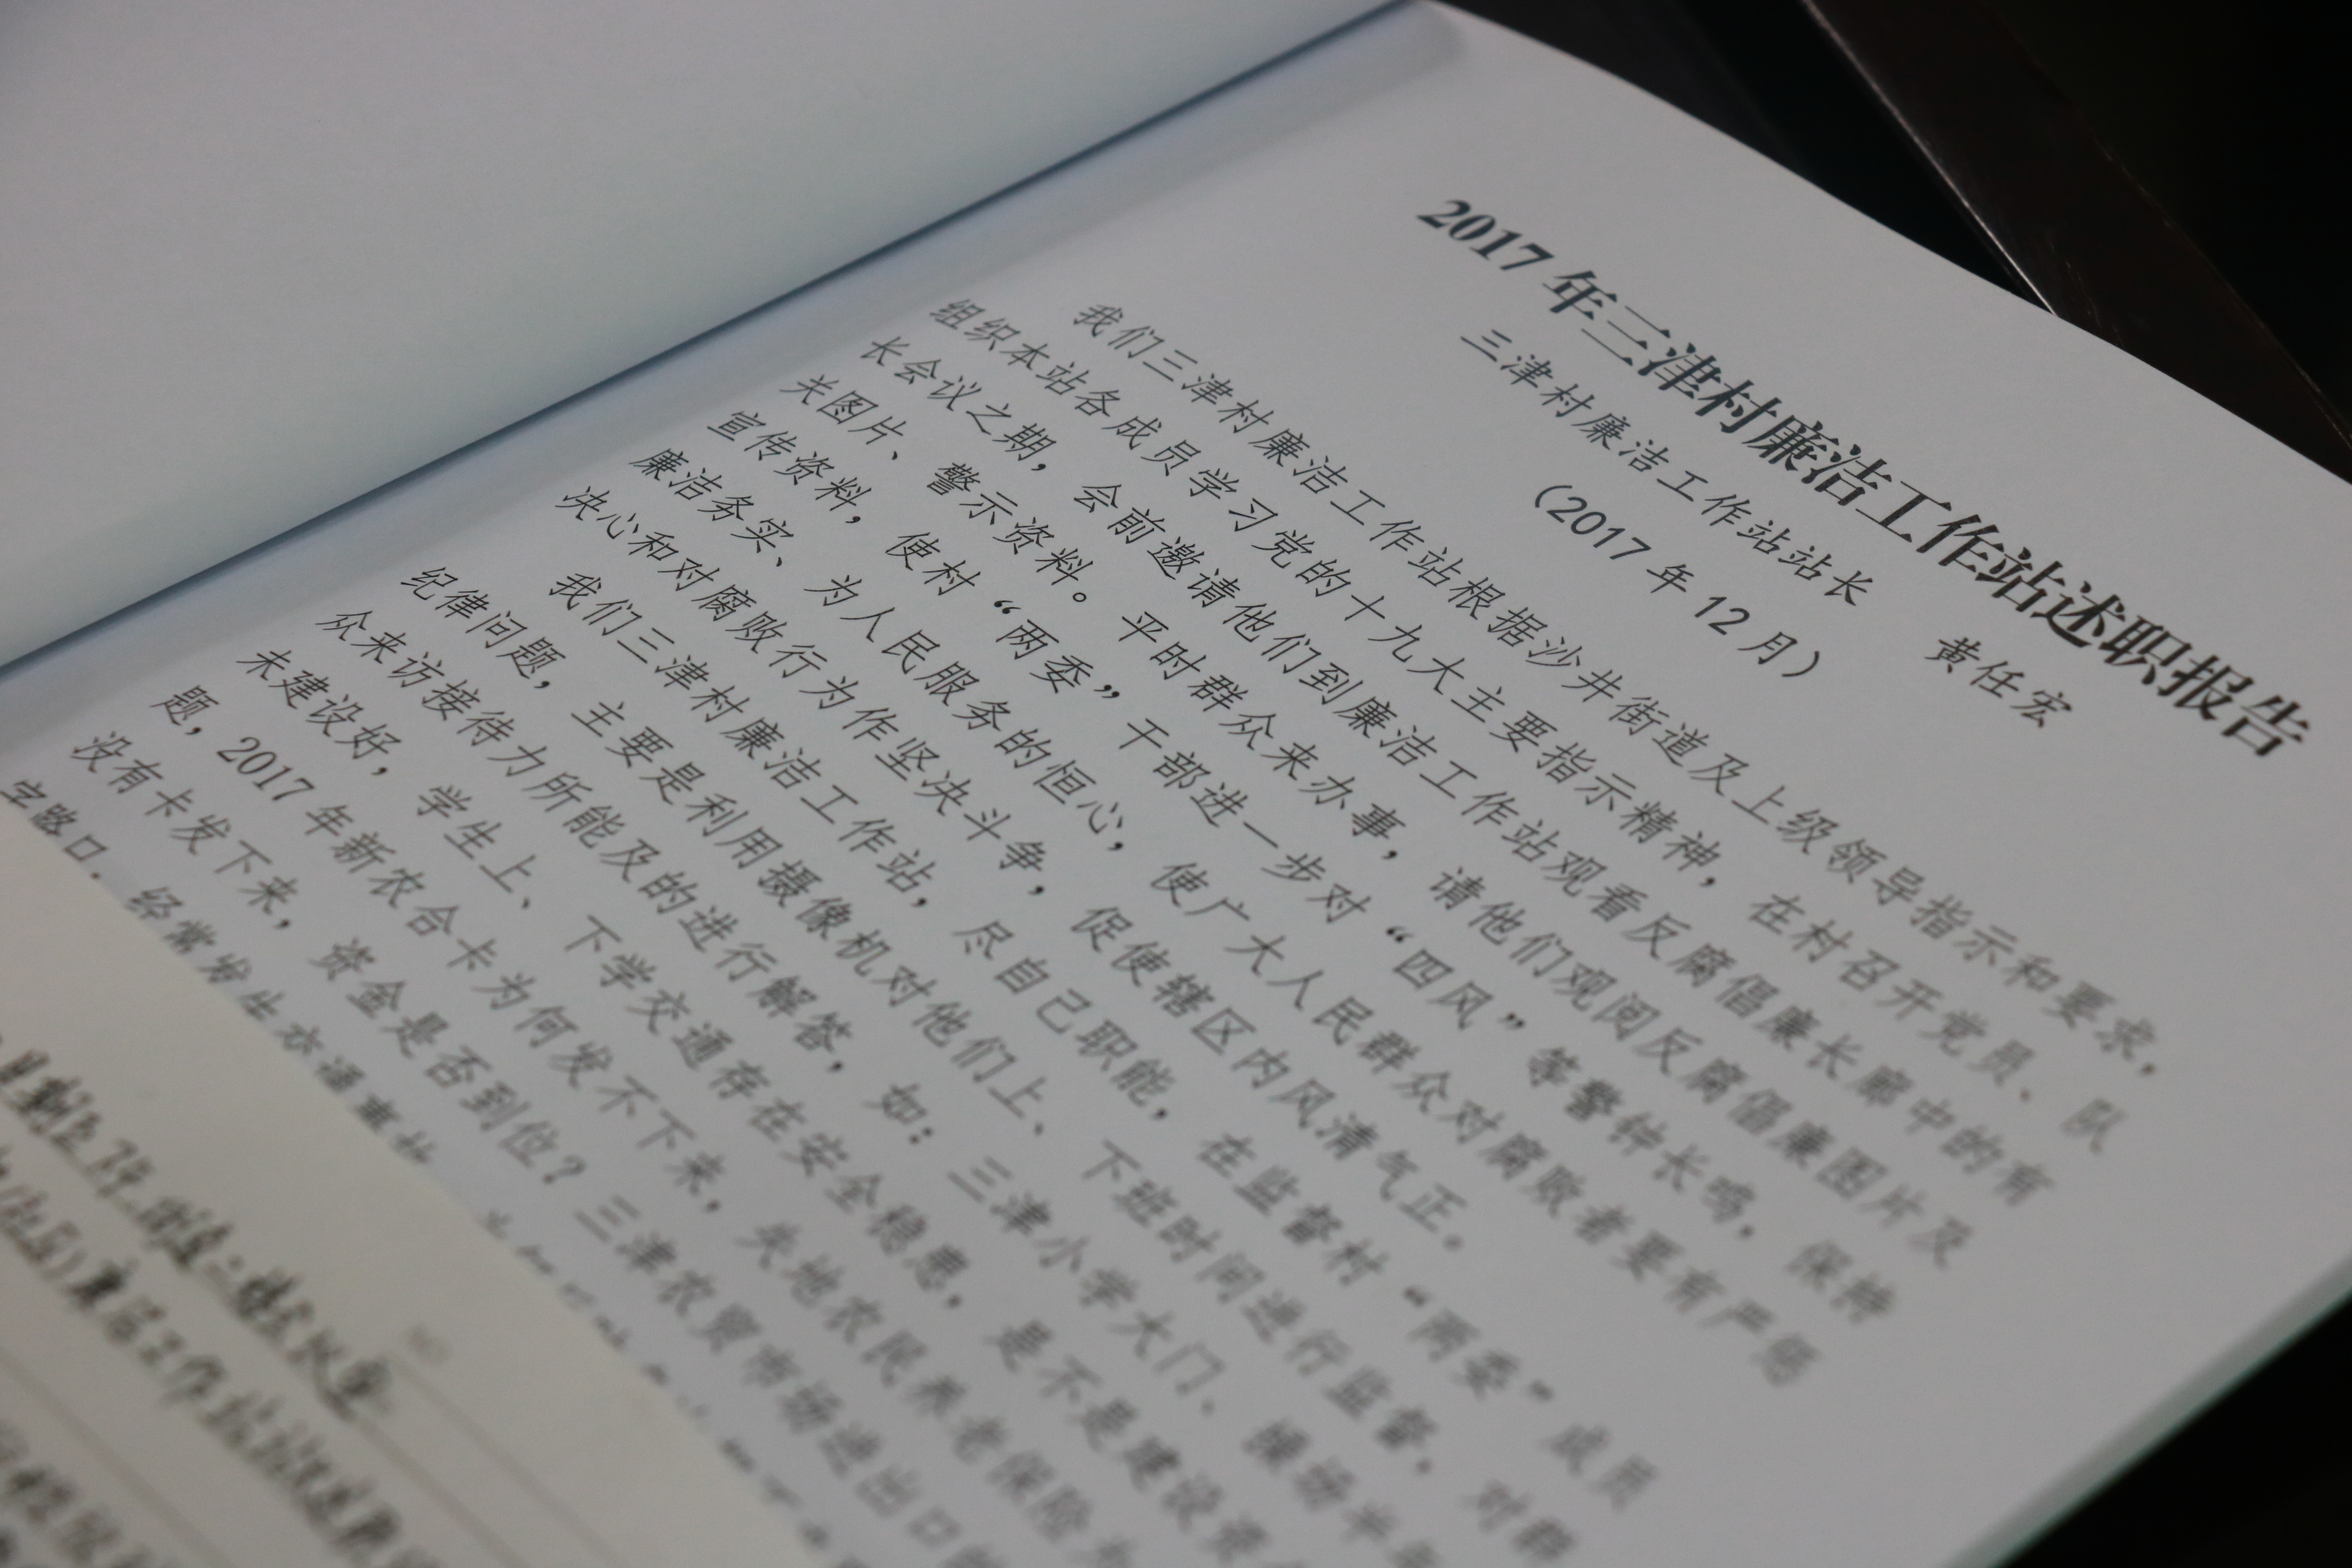 2017 年三津村廉洁工作站述职报告
三津村廉洁工作站站长 黄任宏
(2017 年 12 月)
我们三津村廉洁工作站根据沙井街道及上级领导指示和要求,
组织本站各成员学习党的十九大主要指示精神, 在村召开党员、队
长会议之期, 会前邀请他们到廉洁工作站观看反腐倡廉长廊中的有
关图片、警示资料。平时群众来办事, 请他们观阅反腐倡廉图片及
宣传资料, 使村 “两委” 干部进一步对 “四风” 等警钟长鸣, 保持
廉洁务实、为人民服务的恒心, 使广大人民群众对腐败者要有严惩
决心和对腐败行为作坚决斗争, 促使辖区内风清气正。
我们三津村廉洁工作站, 尽自己职能, 在监督村 “两委” 成员
纪律问题, 主要是利用摄像机对他们上、下班时间进行监督, 对群
众来访接待力所能及的进行解答, 如: 三津小学大门、操场半年
未建设好, 学生上、下学交通存在安全稳患, 是不是建设资
题, 2017 年新农合卡为何发不下来, 失地农民养老保险为
没有卡发下来, 资金是否到位? 三津农贸市场进出口
字路口, 经常发生交通事故